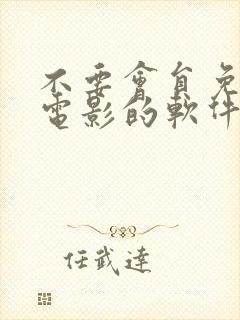 不要會員免
電影的軟件
任武達